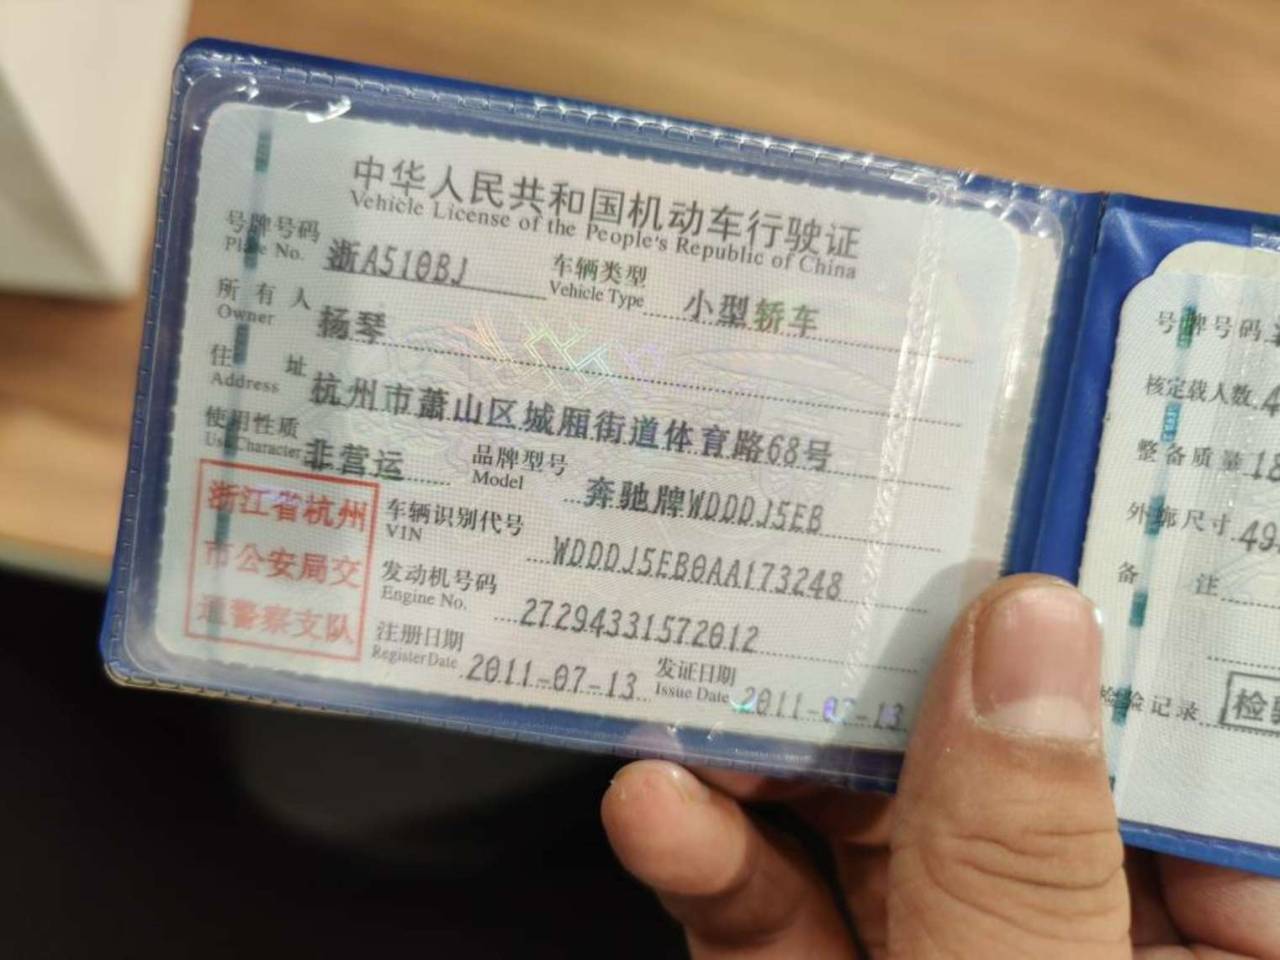 中华人民共和国机动车行驶证
Vehicle License of the People's Republic of China
号牌号码 浙A510BJ 车辆类型 小型轿车
Plate No. Vehicle Type
所有人 杨琴
Owner
住址 杭州市萧山区城厢街道体育路68号
Address
使用性质 非营运 品牌型号 奔驰牌WDDDJ5EB
Use Character Model
浙江省杭州
市公安局交
通警察支队
车辆识别代号 WDDDJ5EB0AA173248
VIN
发动机号码 27294331572012
Engine No.
注册日期 2011-07-13 发证日期 2011-07-13
Register Date Issue Date
号牌号码
核定载人数 4
整备质量 18
外廓尺寸 49
备注
检验记录 检